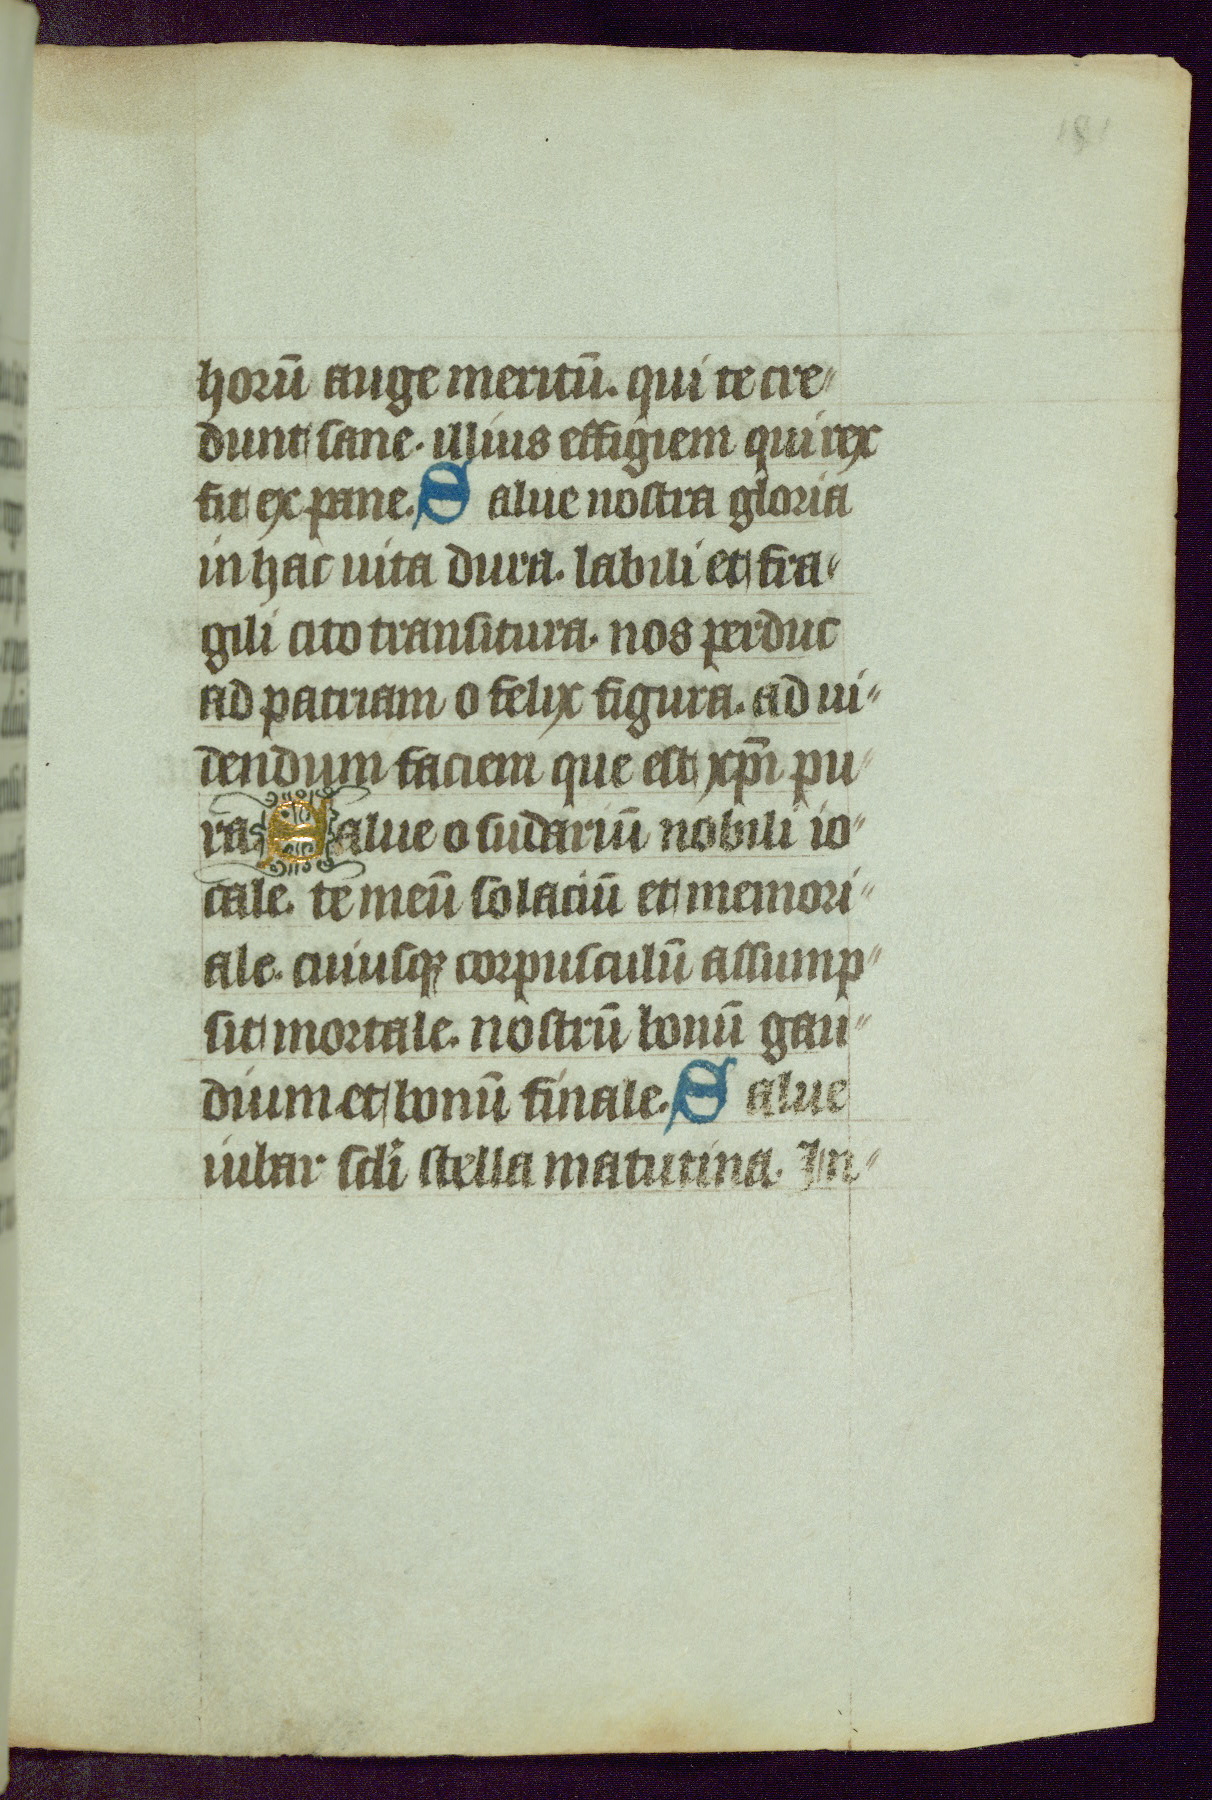 181
horū auge meritū. qui te cre-
dunt sane. illius effigiem qui rex
fit ex pane. Salue nostra gloria
in hac uita dura. labili et fra-
gili cito transitura. nos perduc
ad patriam o felix figura. ad ui-
dendum faciem que est xp̄i pu-
ra. Salue o sudariū nobili io-
cale. te meū solaciū et memori-
ale. cuiusqꝫ corpusculū assump-
sit mortale. nostrū bonū gau-
dium et bonū finale. Salue
iubar scl̄i stella matutina. In-